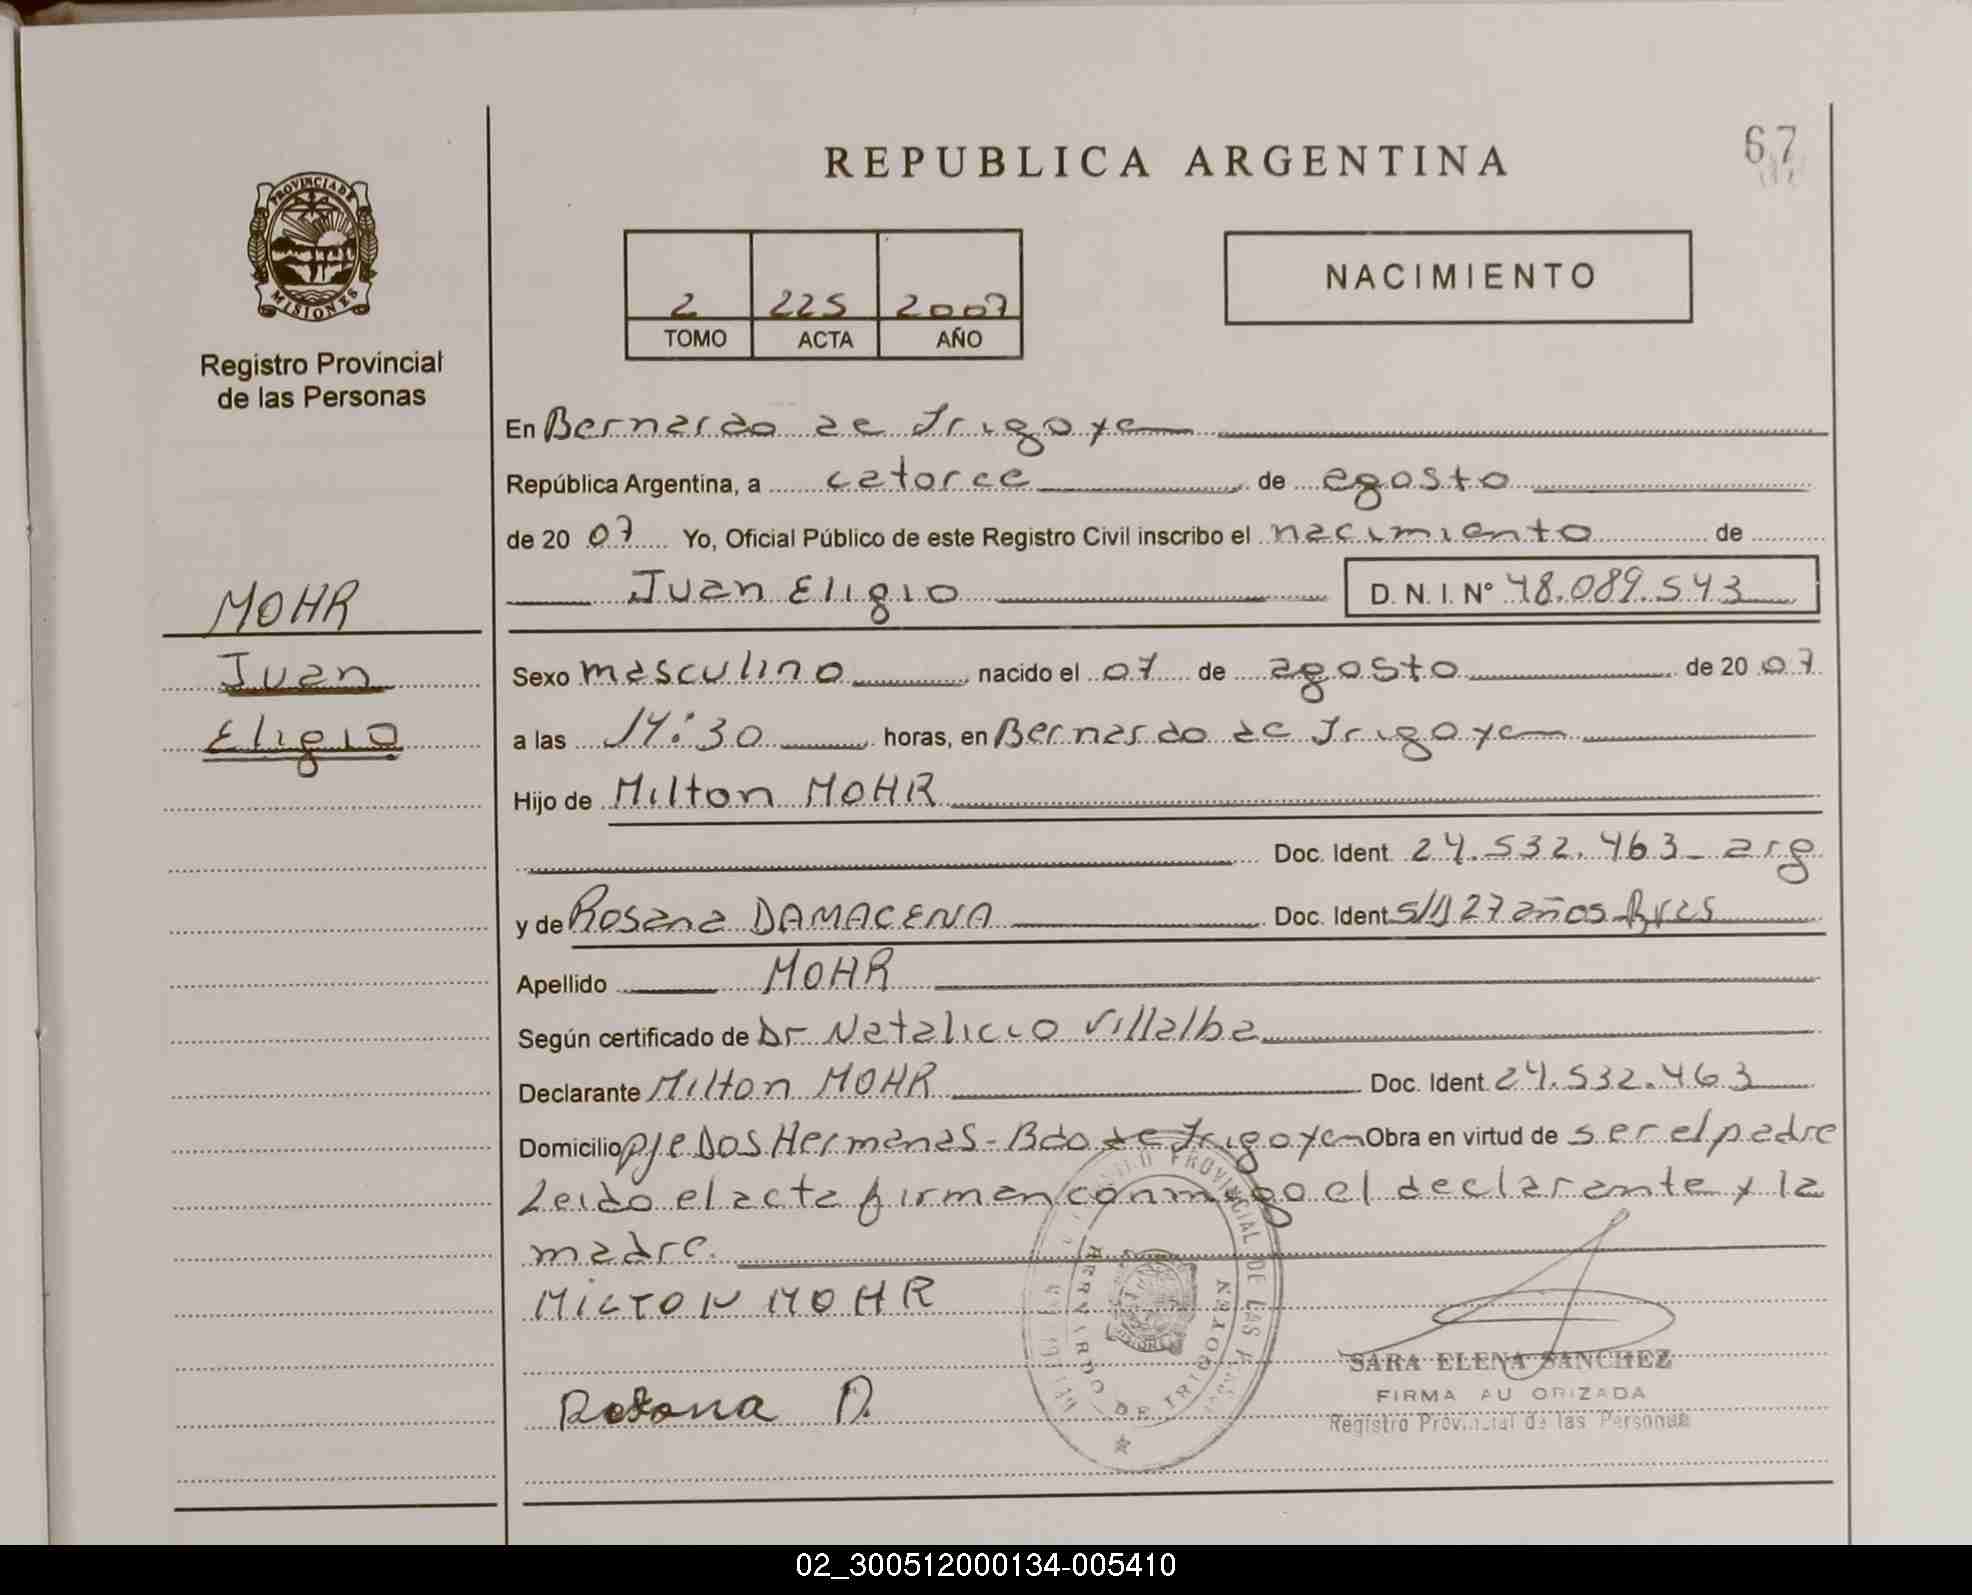 REPUBLICA ARGENTINA
67
PROVINCIA DE
MISIONES
Registro Provincial
de las Personas
2 225 2007
TOMO ACTA AÑO
NACIMIENTO
En Bernardo de Irigoyen
República Argentina, a catorce de agosto
de 20 07 Yo, Oficial Público de este Registro Civil inscribo el nacimiento de
Juan Eligio D. N. I. Nº 48.089.543
MOHR
Juan
Eligio
Sexo masculino nacido el 07 de agosto de 20 07
a las 14:30 horas, en Bernardo de Irigoyen
Hijo de Milton MOHR
Doc. Ident. 24.532.463_ arg
y de Rosana DAMACENA Doc. Ident. S/D 27 años Bras
Apellido MOHR
Según certificado de Dr Natalicio Villalba
Declarante Milton MOHR Doc. Ident. 24.532.463
Domicilio pje Dos Hermanas - Bdo de Irigoyen Obra en virtud de ser el padre
Leido el acta firman conmigo el declarante y la
madre.
MILTON MOHR
Rosana D.
PROVINCIAL DE LAS
BERNARDO DE IRIGOYEN
SARA ELENA SANCHEZ
FIRMA AU ORIZADA
Registro Provincial de las Personas
02_300512000134-005410